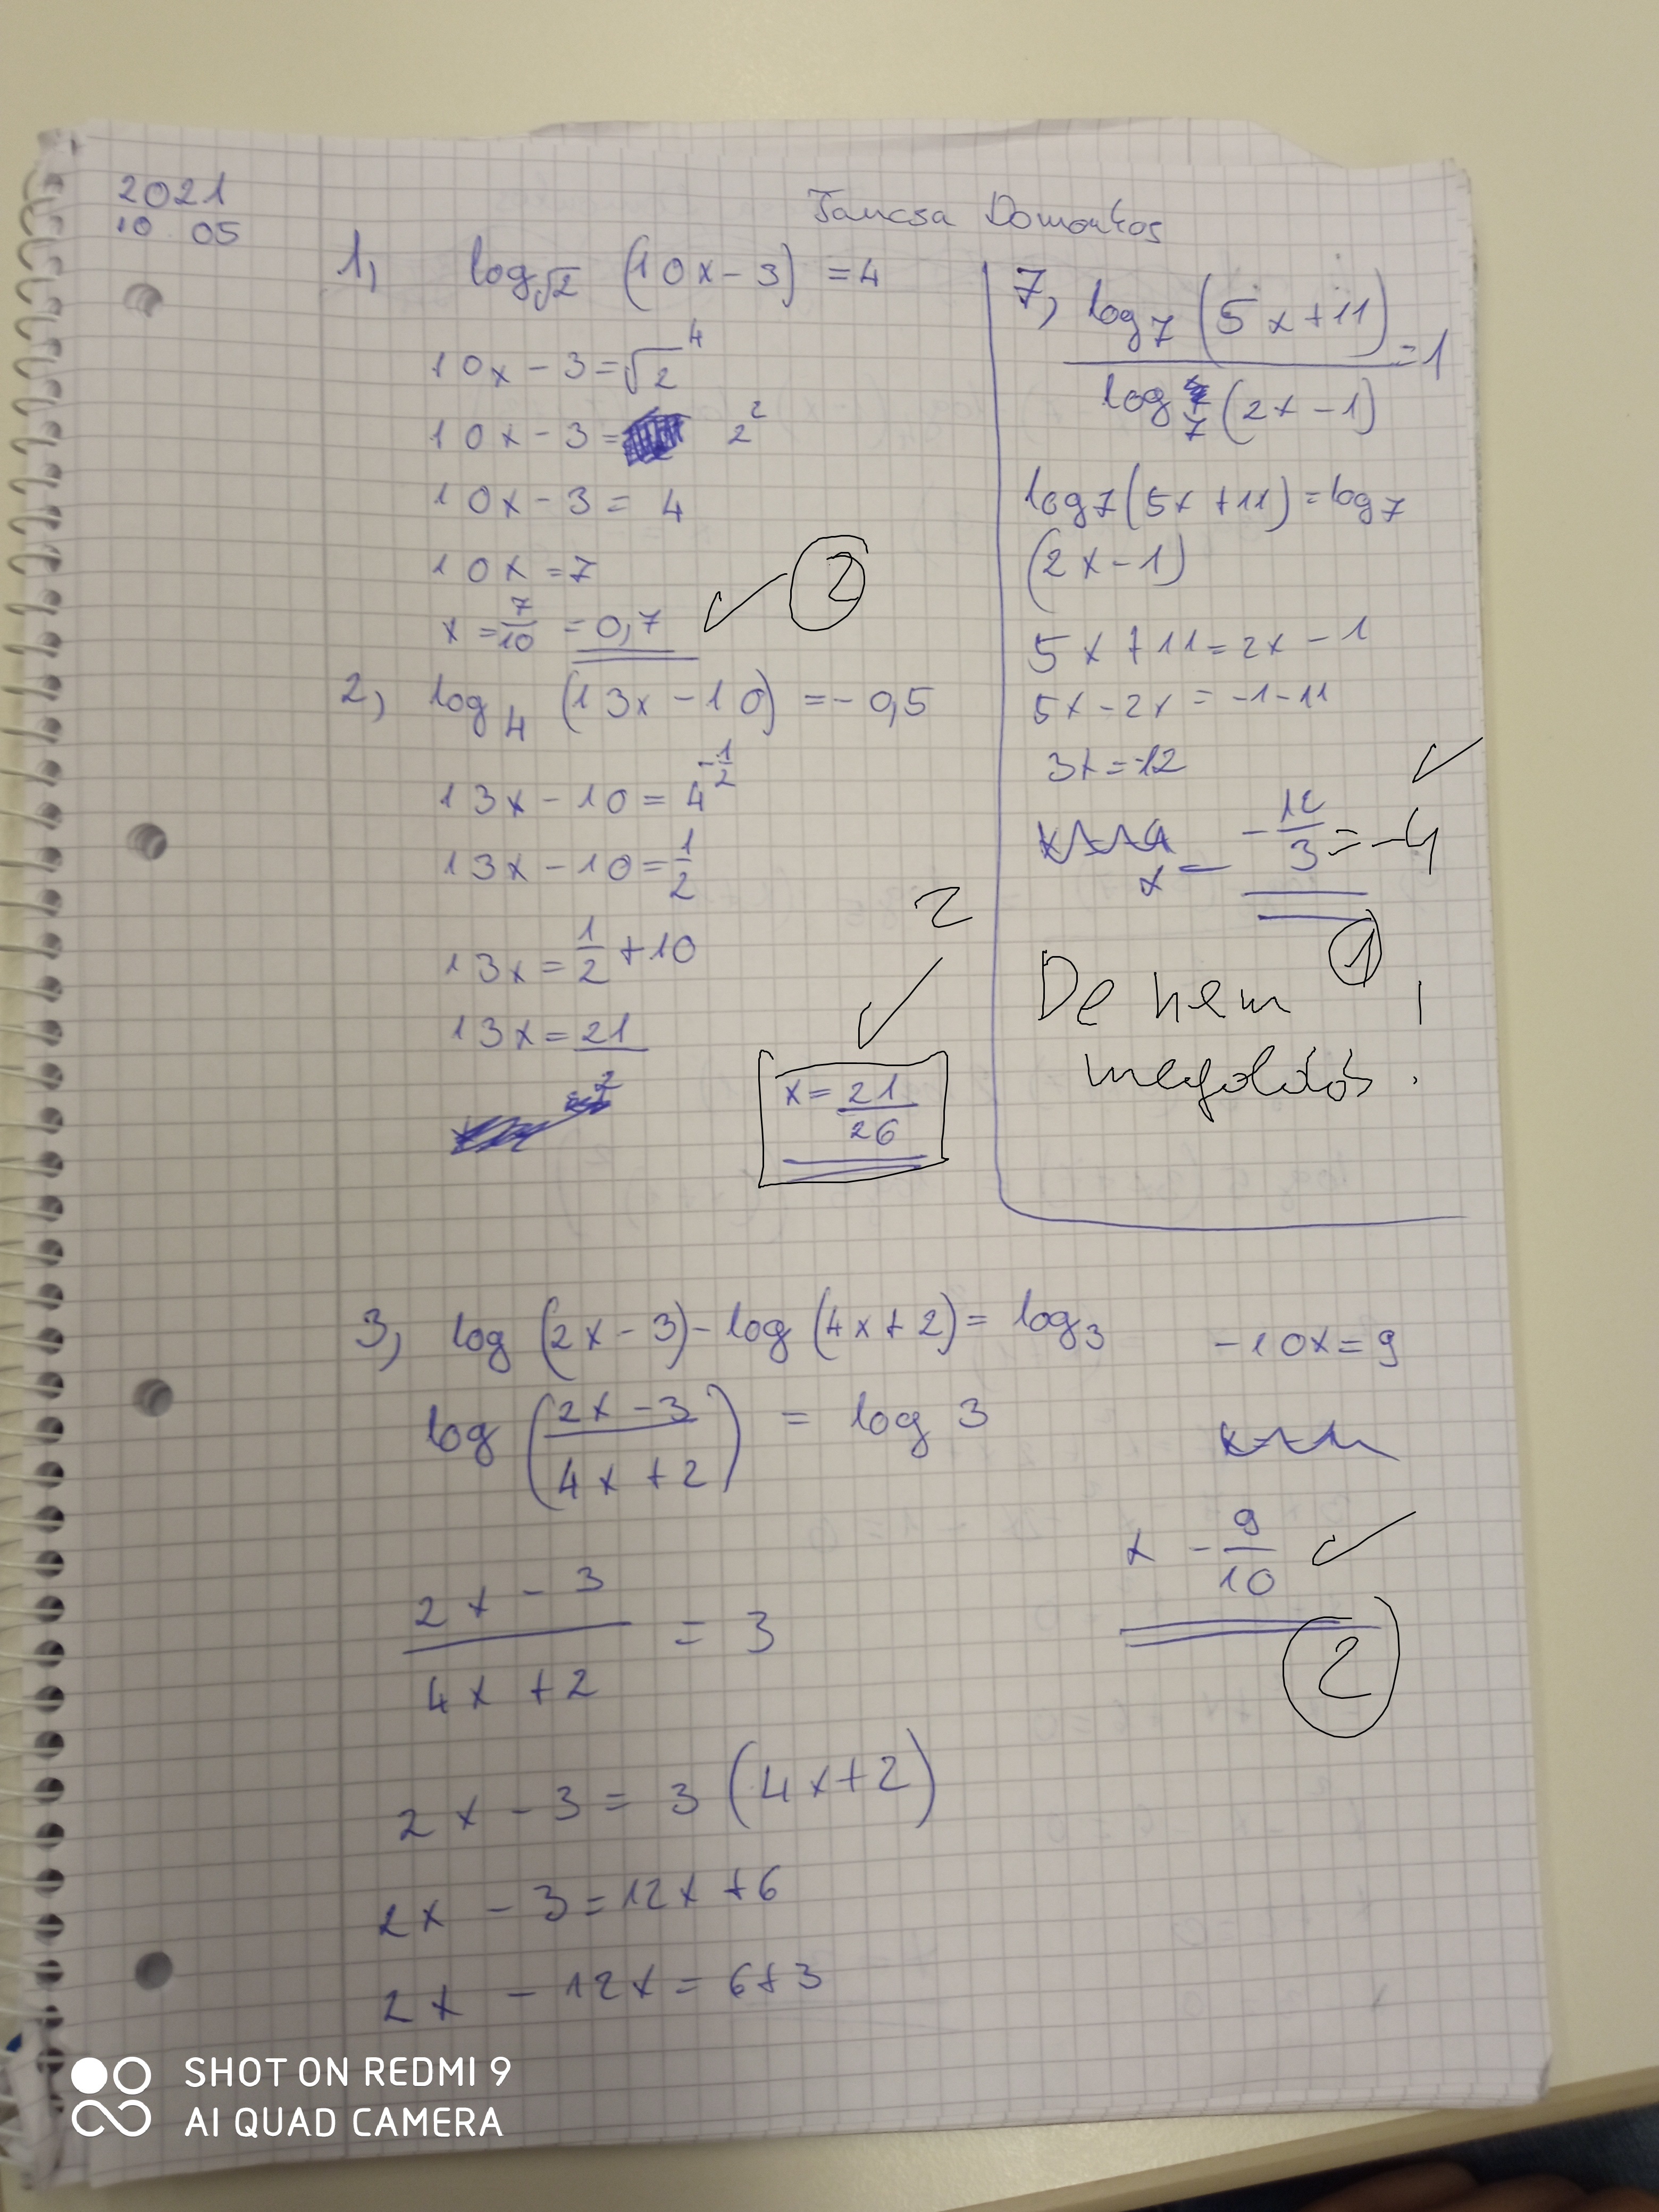 2021
10 05
Tancsa Domonkos
1, log√2 (10x-3) = 4
10x-3=√2^4
10x-3= 2^2
10x-3= 4
10x=7
x=7/10=0,7 ✓ 2
2, log4 (13x-10) =-0,5
13x-10=4^-1/2
13x-10=1/2
13x=1/2+10
13x=21/2
2 ✓
x=21/26
7, log7(5x+11)/log7(2x-1)=1
log7(5x+11)=log7
(2x-1)
5x+11=2x-1
5x-2x=-1-11
3x=-12 ✓
x=-12/3=-4
1
De nem
megoldás!
3, log(2x-3)-log(4x+2)=log3
log((2x-3)/(4x+2)) = log 3
(2x-3)/(4x+2) = 3
2x-3=3(4x+2)
2x-3=12x+6
2x-12x=6+3
-10x=9
x -9/10 ✓
2
SHOT ON REDMI 9
AI QUAD CAMERA